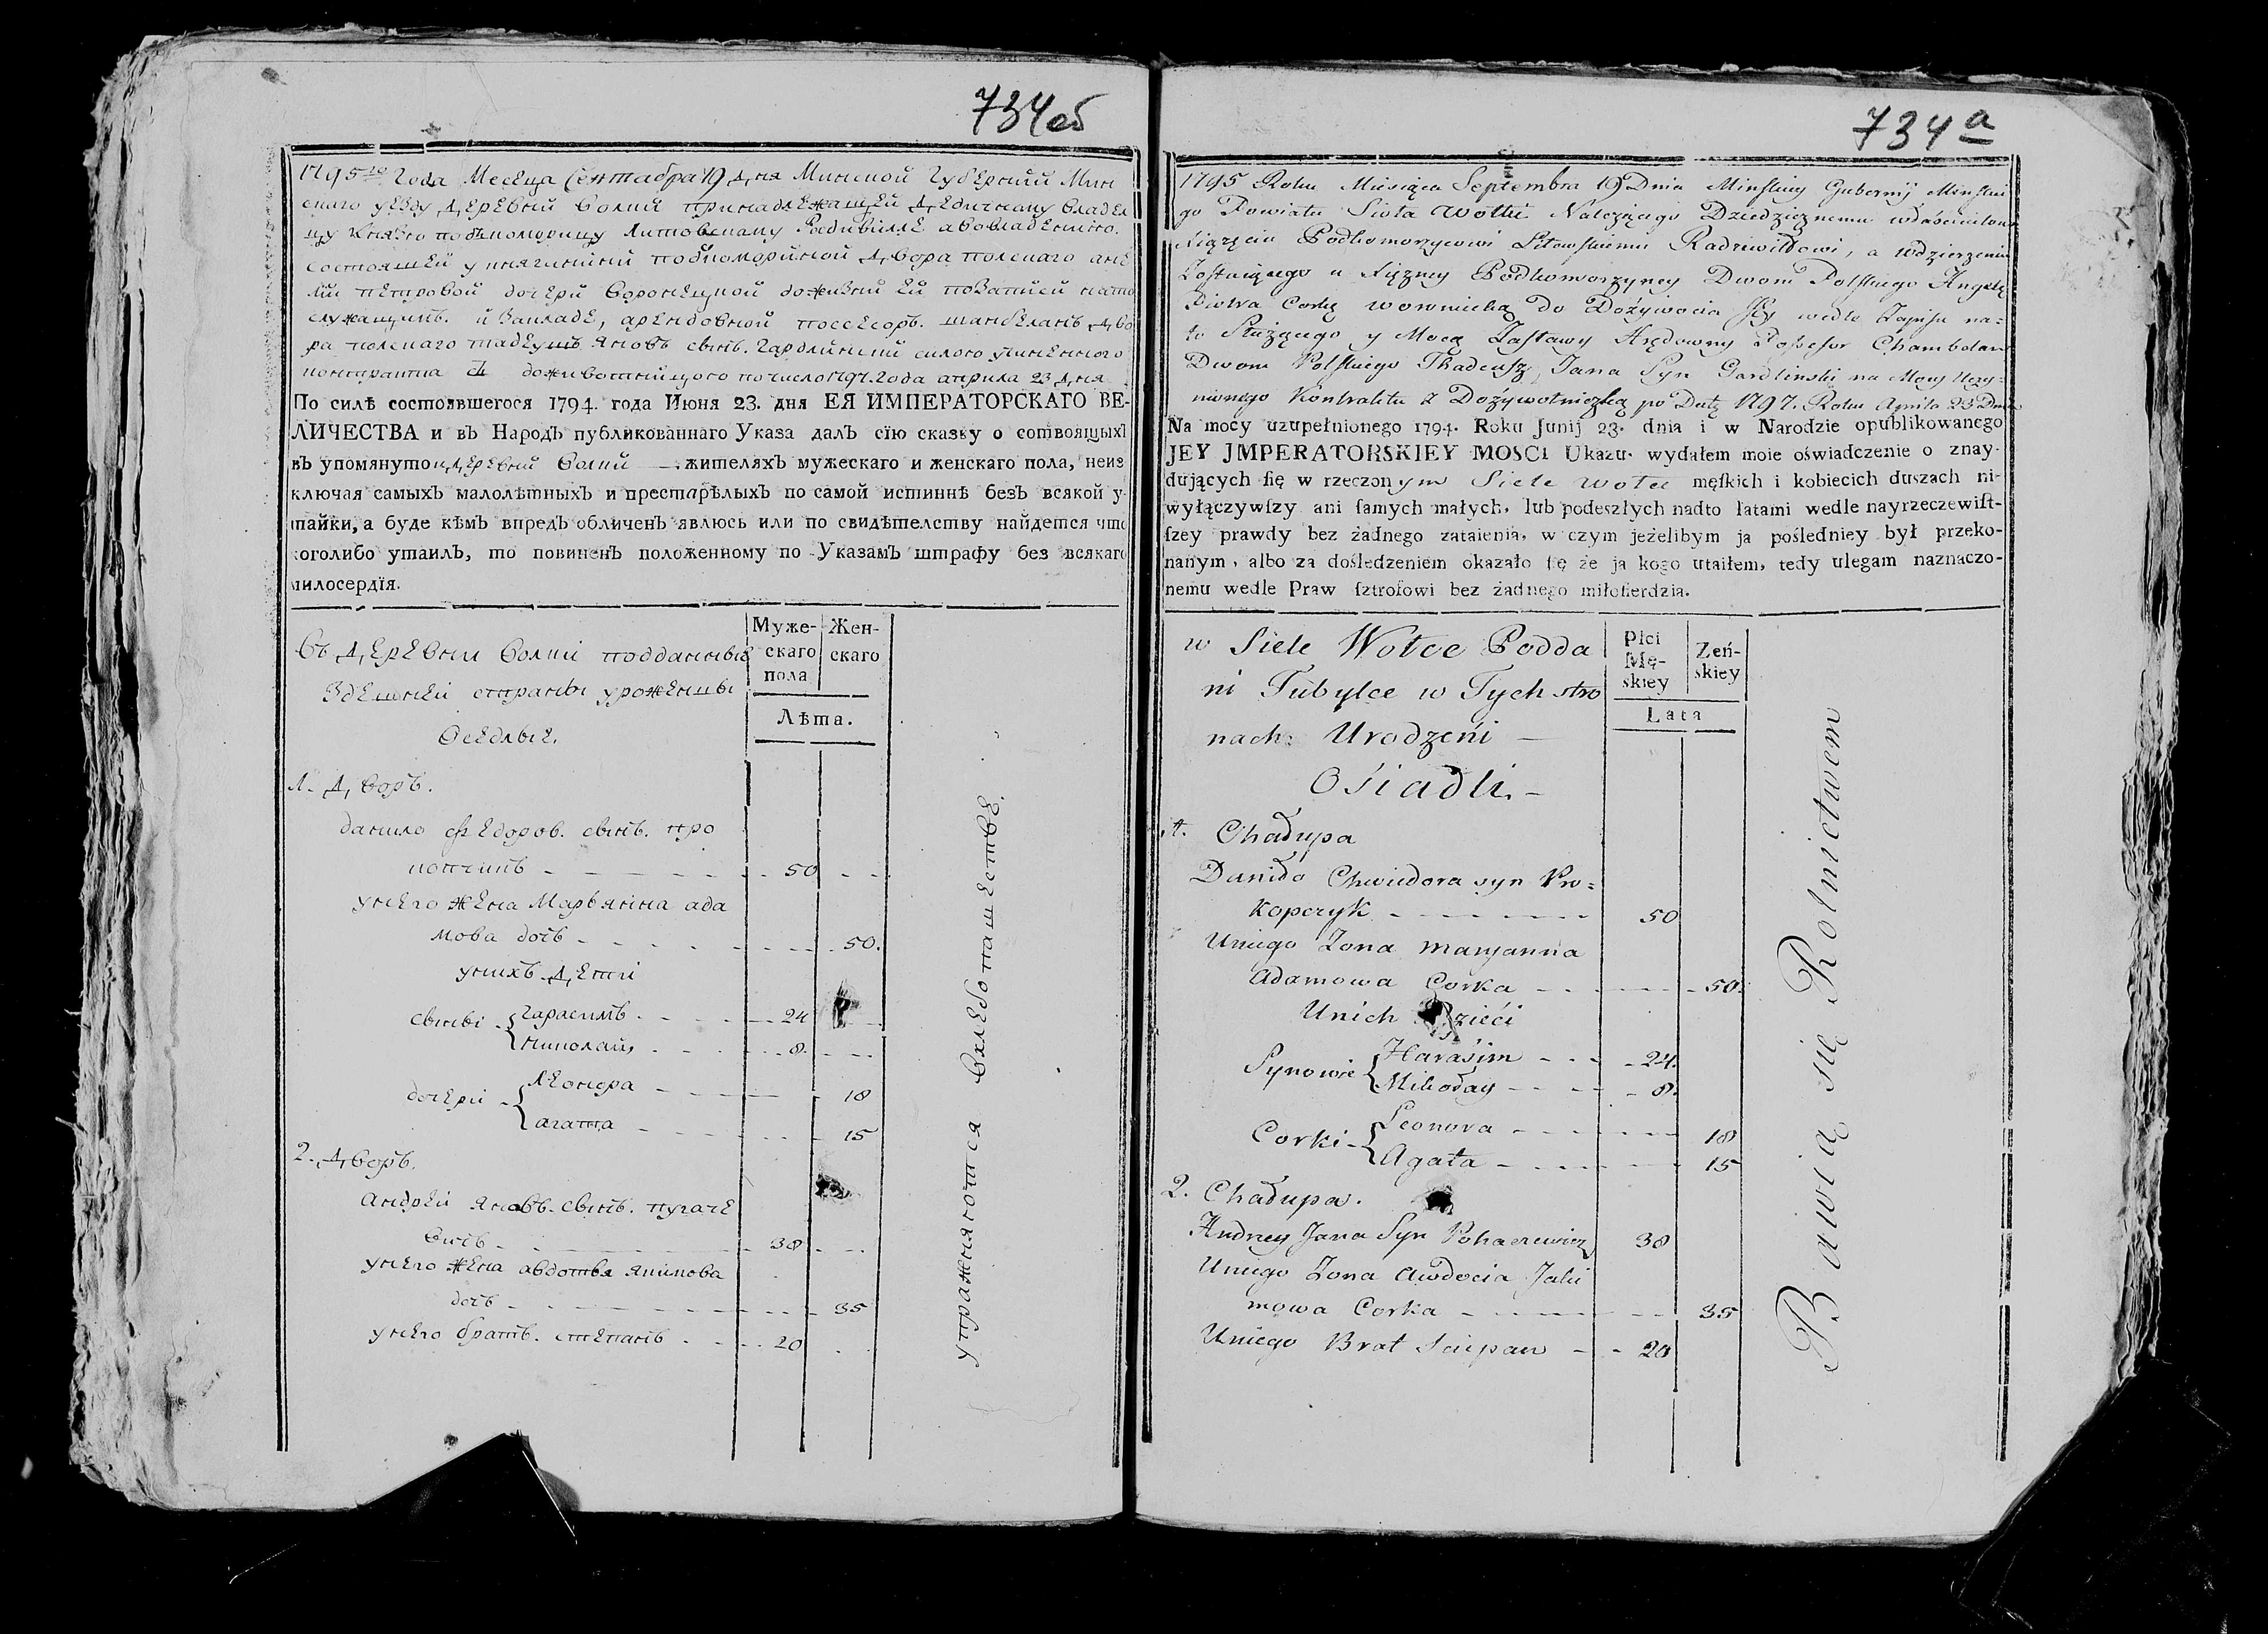 734об
1795го Года Месеца Сентабра 19 дня Минской Губерний Мин
скаго уезду деревни Волки принадлежащей дедичному владел
цу Князю подкоморицу Литовскому Радивилле а вовладениюю
состоящей у княгинний подкомориной двора полскаго анE
ли петровой дочери Воронецкой доживни ей позаписи нато
служащимъ. и Закладе, арендовной поссесоръ. шанбеланъ дво
ра полскаго тадеушъ яновъ сынъ. Гардлинский силою учиненного
контракта до числ 1797. Года априла 23 дня
По силѣ состоявшегося 1794. года Июня 23. дня ЕЯ ИМПЕРАТОРСКАГО ВЕ-
ЛИЧЕСТВА и въ Народъ публикованнаго Указа далъ сїю сказку о сотвоящыхъ
въ упомянутой деревни Волки — жителяхъ мужескаго и женскаго пола, неиз
ключая самыхъ малолѣтныхъ и престарѣлыхъ по самой истиннѣ безъ всякой у-
тайки, а буде кѣмъ впредъ обличенъ явлюсь или по свидѣтелству найдется что
коголибо утаилъ, то повиненъ положенному по Указамъ штрафу без всякаго
милосердїя.
Муже-
скаго
пола
Жен-
скаго
Лѣта.
Въ деревни Волки подданные
Здешней страны уроженцы
Оседлые.
1. Дворъ.
данило федоров. сынъ. про
копчикъ - - - 50
унего жена Марьянна ада
мова дочь - - - 50.
унихъ дети
сынви { Гарасимъ. - - - 24
Николай, - - - 8.
дочери { Леонора - - - 18
агата - - - 15
2. Дворъ.
андрей яновъ. сынъ. пугаче
вичъ - - - 38
унего жена авдотья якимова
дочь - - - 35
унего братъ. степанъ - - - 20
упражняются вхлебопашестве.
734а
1795 Roku Miesiąca Septembra 19 Dnia Minskiey Gubernij Minskie
go Powiatu Sioła Wołki Nalezącego Dziedzicznemu właścicielowi
Xiązęciu Podkomorzycowi Litewskiemu Radziwiłłowi, a wdzierzeniu
Zostaiącego u Xięzney Podkomorzyney Dworu Polskiego Angelę
Piotra Corkę woroniecką do Dożywocia Jey wedle Zapisu na=
to Służącego y Mocą Zastawy Arędowny Possesor Chambelan
Dworu Polskiego Thadeusz Jana Syn Gardlinski na Mocy Uczy=
nionego Kontraktu z Dożywotniczką po Datę 1797. Roku Aprila 23 Dnia
Na mocy uzupełnionego 1794. Roku Junij 23. dnia i w Narodzie opublikowanego
JEY JMPERATORSKIEY MOSCI Ukazu. wydałem moie oświadczenie o znay-
dujących ſię w rzeczonym Siele Wołce męſkich i kobiecich duszach ni-
wyłączywſzy ani ſamych małych, lub podeszłych nadto latami wedle nayrzeczewiſt-
ſzey prawdy bez żadnego zataienia, w czym jeżelibym ja poślednięy był przeko-
nanym, albo za dośledzeniem okazało ſię że ja kogo utaiłem, tedy ulegam naznaczo-
nemu wedle Praw ſztrofowi bez żadnego miłoſierdzia.
Płci
Mę-
skiey
Zeń-
skiey
Lata
w Siele Wołce Podda
ni Tubylce w Tych stro
nach: Urodzeńi —
Ośiadli. —
1. Chałupa
Daniło Chwiedora syn Pro=
kopczyk - - - 50
Uniego Zona Maryanna
Adamowa Corka - - - 50.
Unich Dzieći
Synowie { Haraśim - - - 24.
Mikołay - - - 8.
Corki { Leonora - - - 18
Agata - - - 15
2. Chałupa.
Andrey Jana Syn Pohaczewicz 38
Uniego Zona Awdocia Jaki
mowa Corka - - - 35
Uniego Brat Sciepan - - 20
Bawią się Rolnictwem